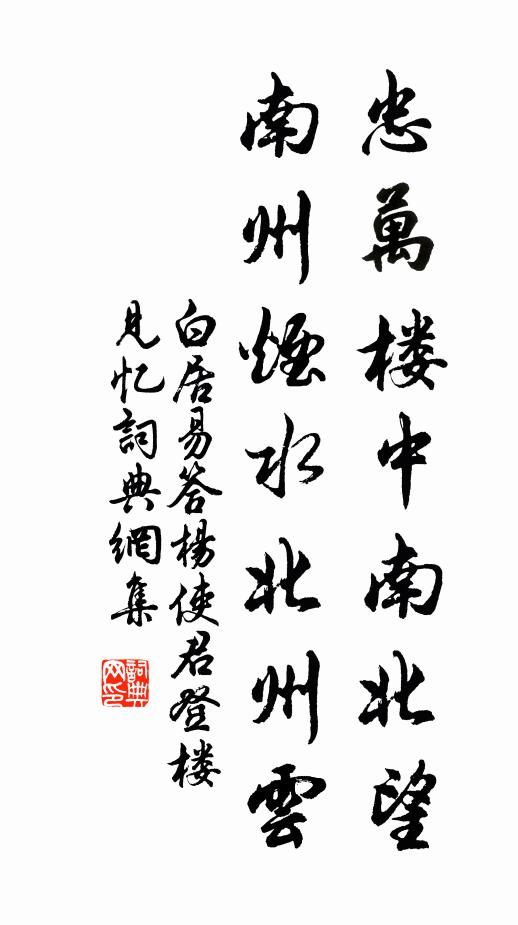 忠萬楼中南北望
南州煙水北州雲
白居易答楊使君登楼
見忆詞典網集
詞典
网印